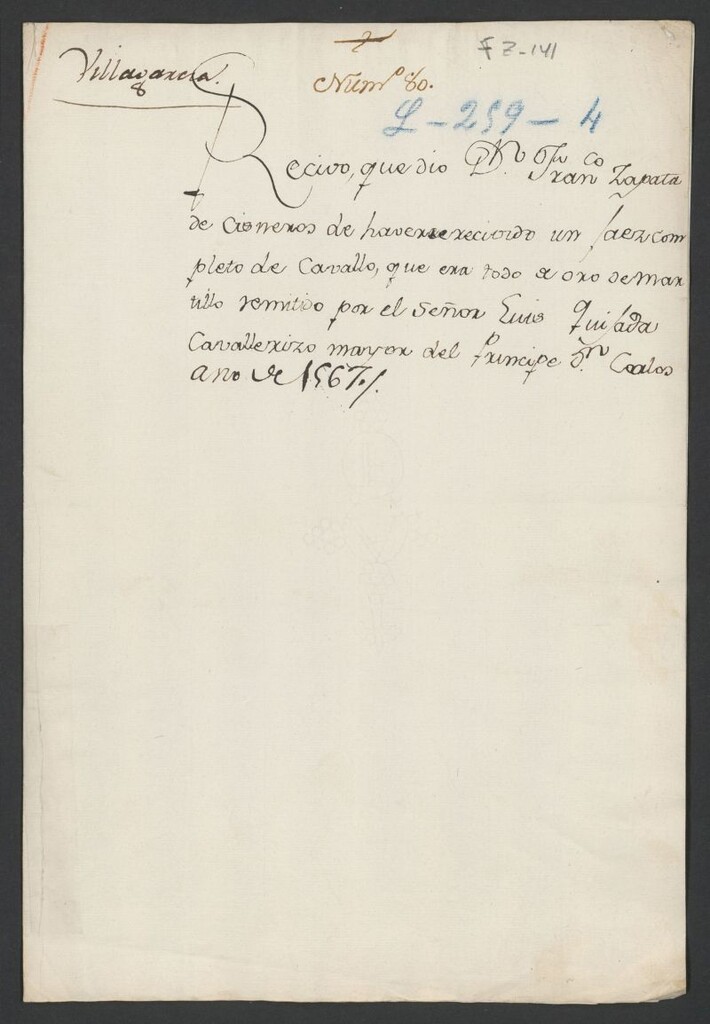 Villagarcia.
8
2
Num.º 80.
FZ-141
L-259-4
Recivo, que dio Dn. Franco Zapata
de Cisneros de haver recivido un Jaez com
pleto de Cavallo, que era todo de oro de mar
tillo remitido por el Señor Luis Quijada
Cavallerizo mayor del Principe Dn. Carlos
año de 1567./.